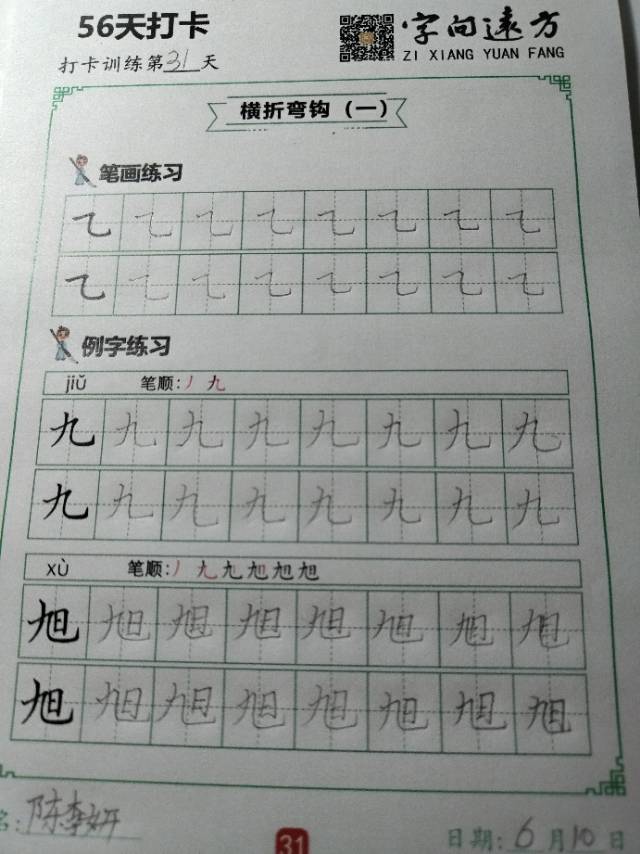 56天打卡
字向远方
ZI XIANG YUAN FANG
打卡训练第31天
横折弯钩（一）
笔画练习
乙乙乙乙乙乙乙乙
乙乙乙乙乙乙乙乙
例字练习
jiǔ 笔顺：丿 九
九九九九九九九九
九九九九九九九九
xù 笔顺：丿 九 九 旭 旭 旭
旭旭旭旭旭旭旭旭
旭旭旭旭旭旭旭旭
名：陈李妍
31
日期：6月10日